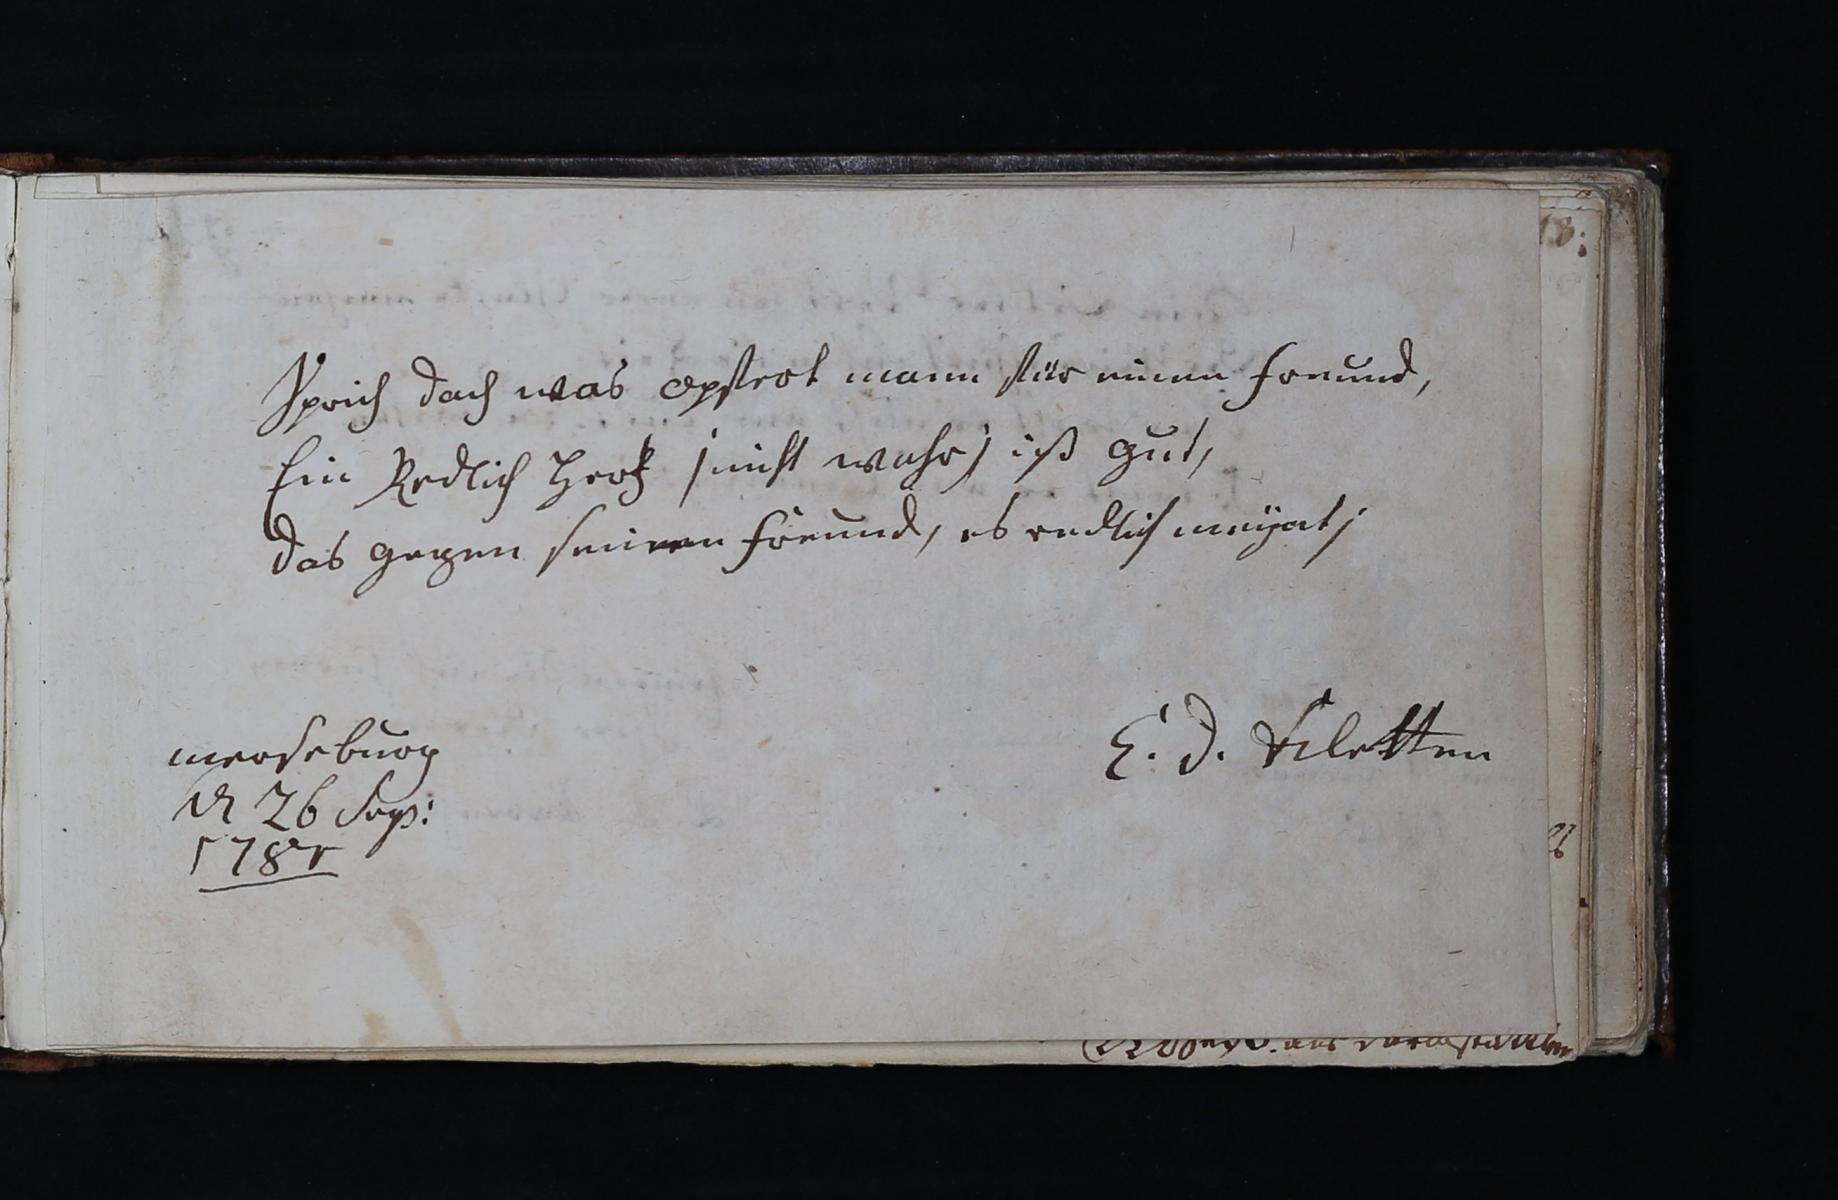 Sprich doch was opffert mann für einen Freund,
Ein Redlich Hertz (nicht wahr) ist gut,
das gegen seinen Freund, es redlich meynt;
merseburg
d 26 Sep:
E. D. Kletten